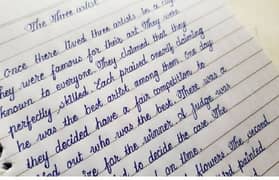 The three artist
Once there lived three artists in a city
hey were famous for their art. They were
known to everyone. They claimed that they
perfectly skilled. Each praised oneself claiming
he was the best artist among them. One day
they decided have a fair competition to
out who was the best. There was a
for the winner. A judge was
to decide the case. The
on time.
flowers. The second
painted